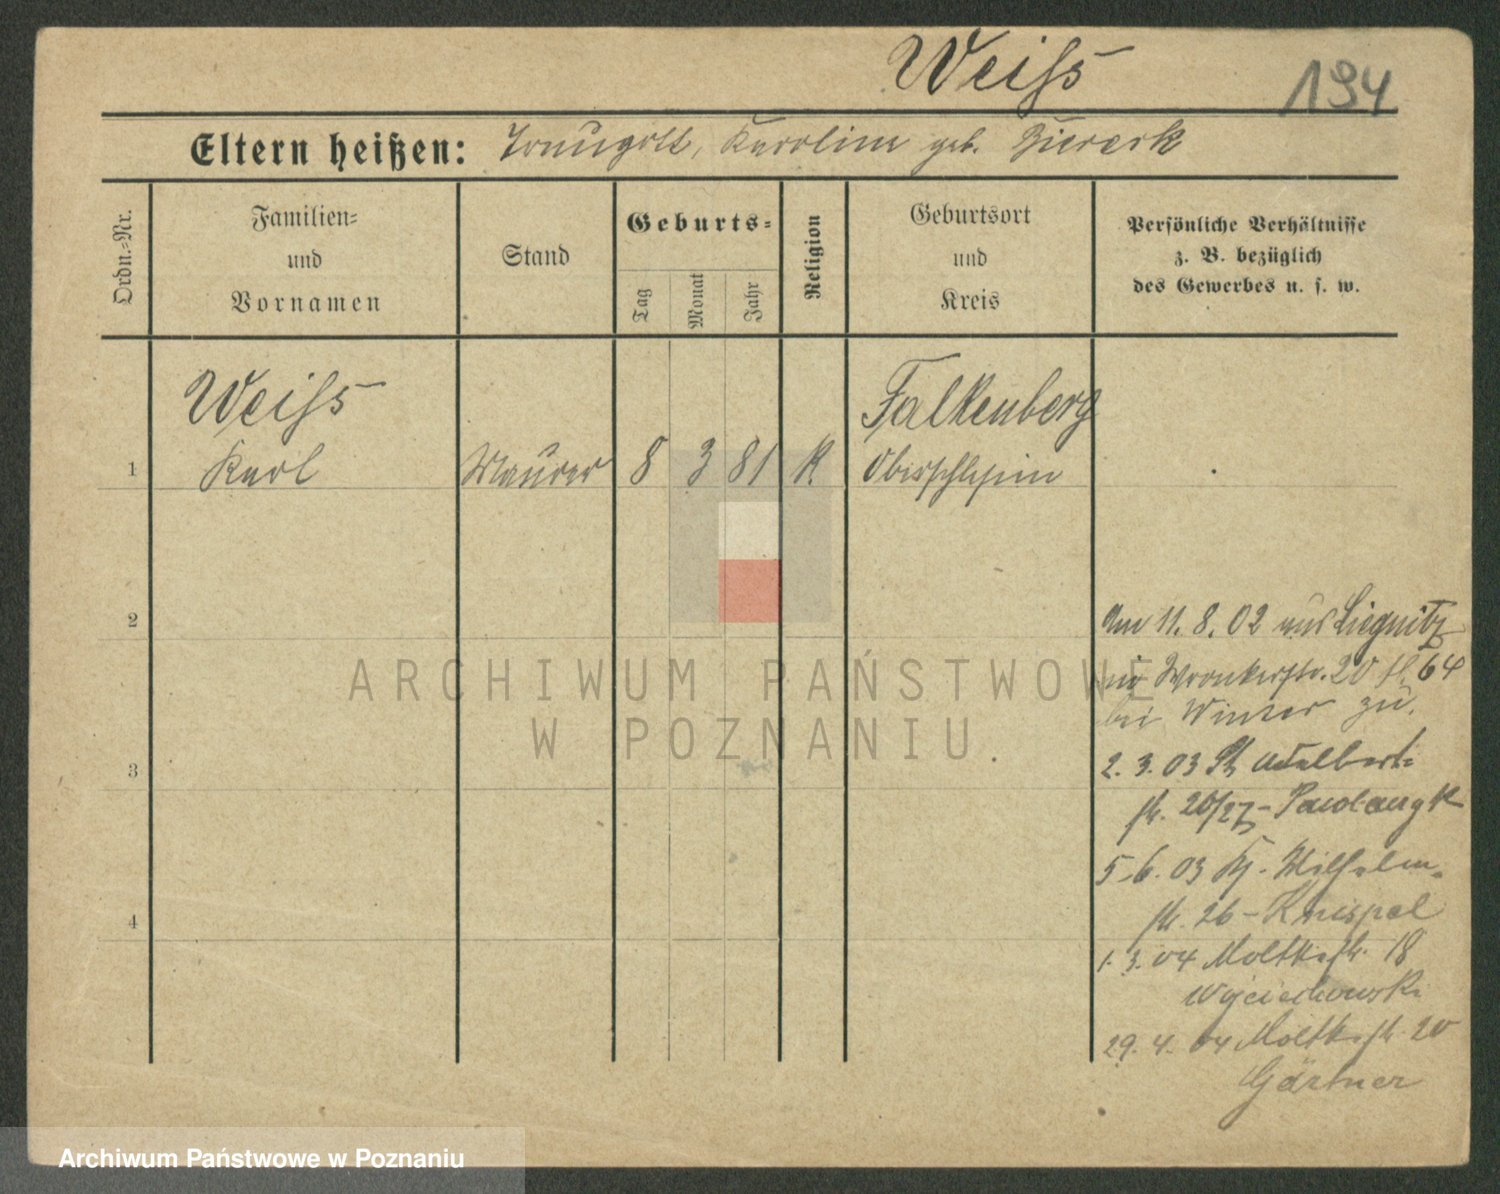 Weiß
194
Eltern heißen: Traugott, Karoline geb.
Ordn.-Nr.
Familien-
und
Vornamen
Stand
Geburts-
Tag
Monat
Jahr
Religion
Geburtsort
und
Kreis
Persönliche Verhältnisse
z. B. bezüglich
des Gewerbes u. s. w.
Weiß
Falkenberg
1 Karl Maurer 8 3 81 K. Oberschlesien
2
Am 11.8.02 aus Liegnitz
Wronkerstr. 20 64
bei Winter zu.
3
2.3.03 St Adalbert-
str. 26/27 -
5.6.03 Wilhelm-
str. 26 - Knispel
4
1.3.04 Moltkestr. 18
Wojciechowski
29.4.04 Moltkestr. 20
Gärtner
ARCHIWUM PAŃSTWOWE
W POZNANIU
Archiwum Państwowe w Poznaniu